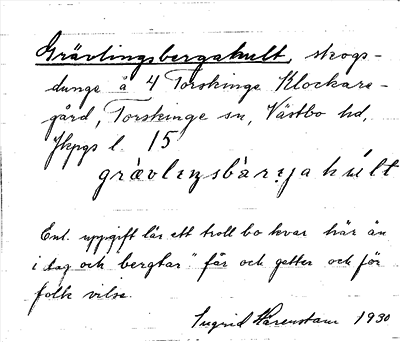 Grävlingsbergahult, skogs-
dunge å 4 Torskinge Klockare-
gård, Torskinge sn, Västbo hd,
Jkpgs l. 15
grὰvlıŋsbὰrȷahúlt
Enl. uppgift lär ett troll bo kvar här än
i dag och bergtar" får och getter och för
folk vilse.
Ingrid Särenstam 1930